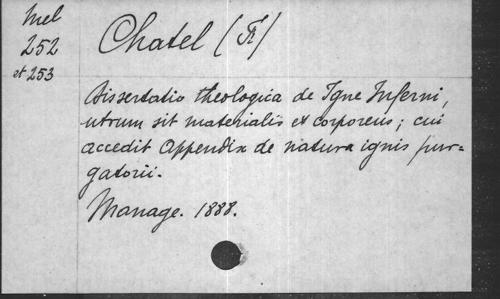 Mel
252
et 253
Chatel (Fr)
Dissertatio theologica de Igne Inferni,
utrum sit materialis et corporeus; cui
accedit Appendix de natura ignis pur-
gatorii.
Manage. 1888.